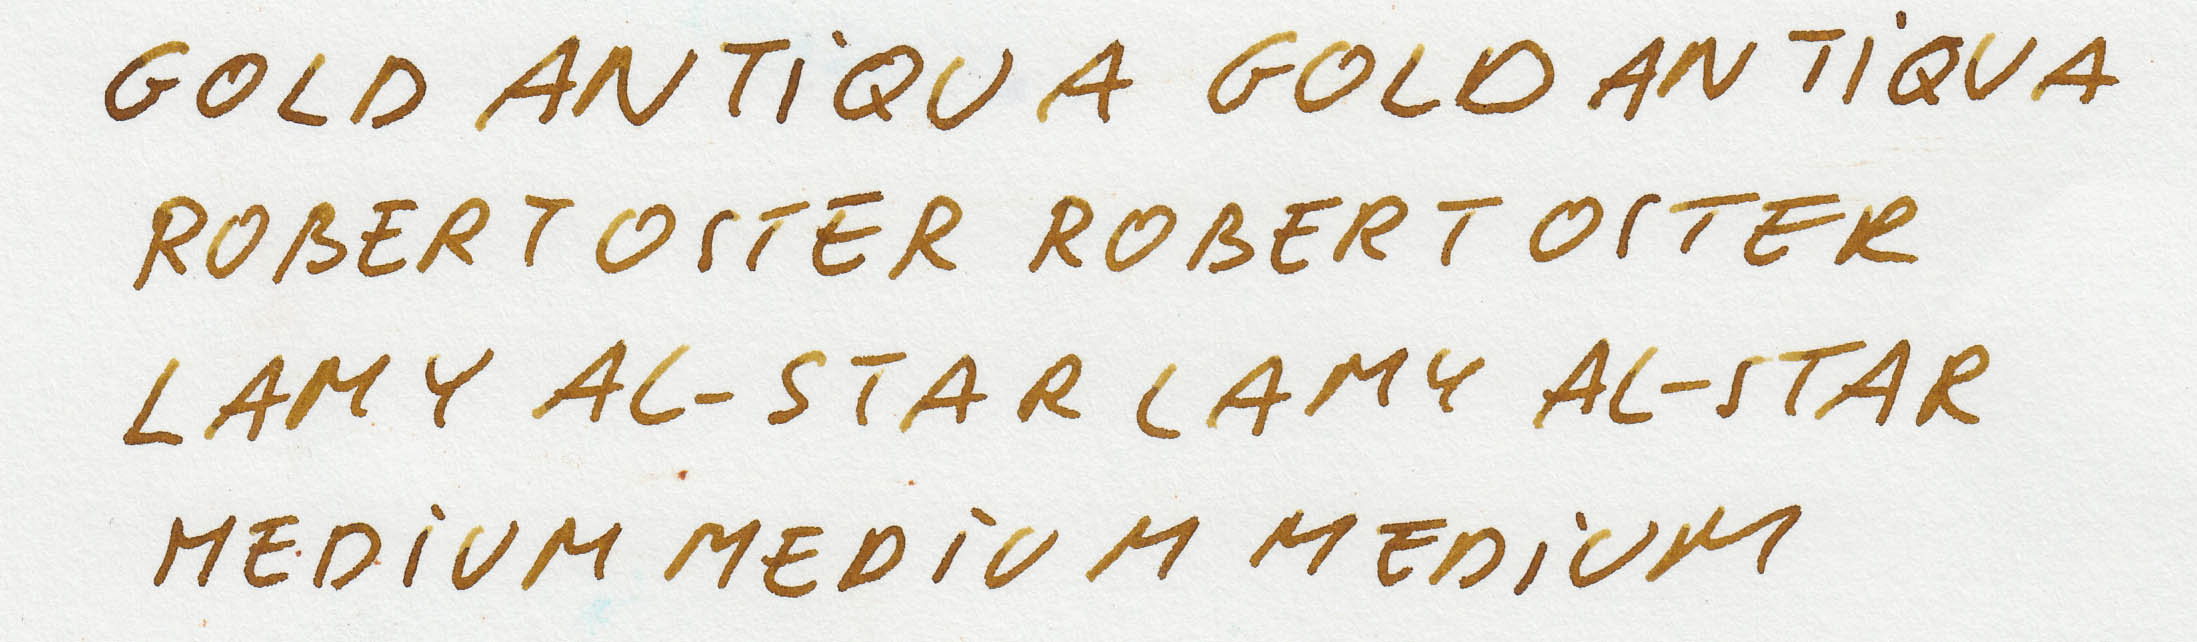 GOLD ANTiQUA GOLD ANTiQUA
ROBERT OSTER ROBERT OSTER
LAMY AL-STAR LAMY AL-STAR
MEDiUM MEDiUM MEDiUM